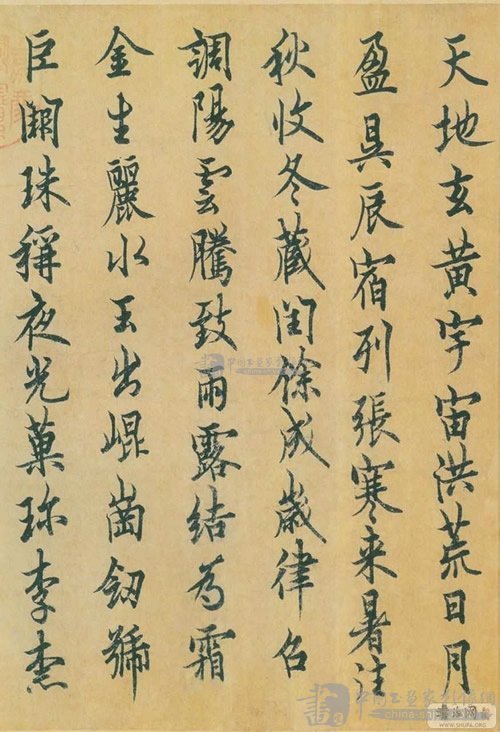 天地玄黃宇宙洪荒日月
盈昃辰宿列張寒来暑往
秋收冬藏閏餘成歲律召
調陽雲騰致雨露結為霜
金生麗水玉出崐崗劒號
巨闕珠稱夜光菓珍李柰
书法网
WWW.SHUFA.ORG